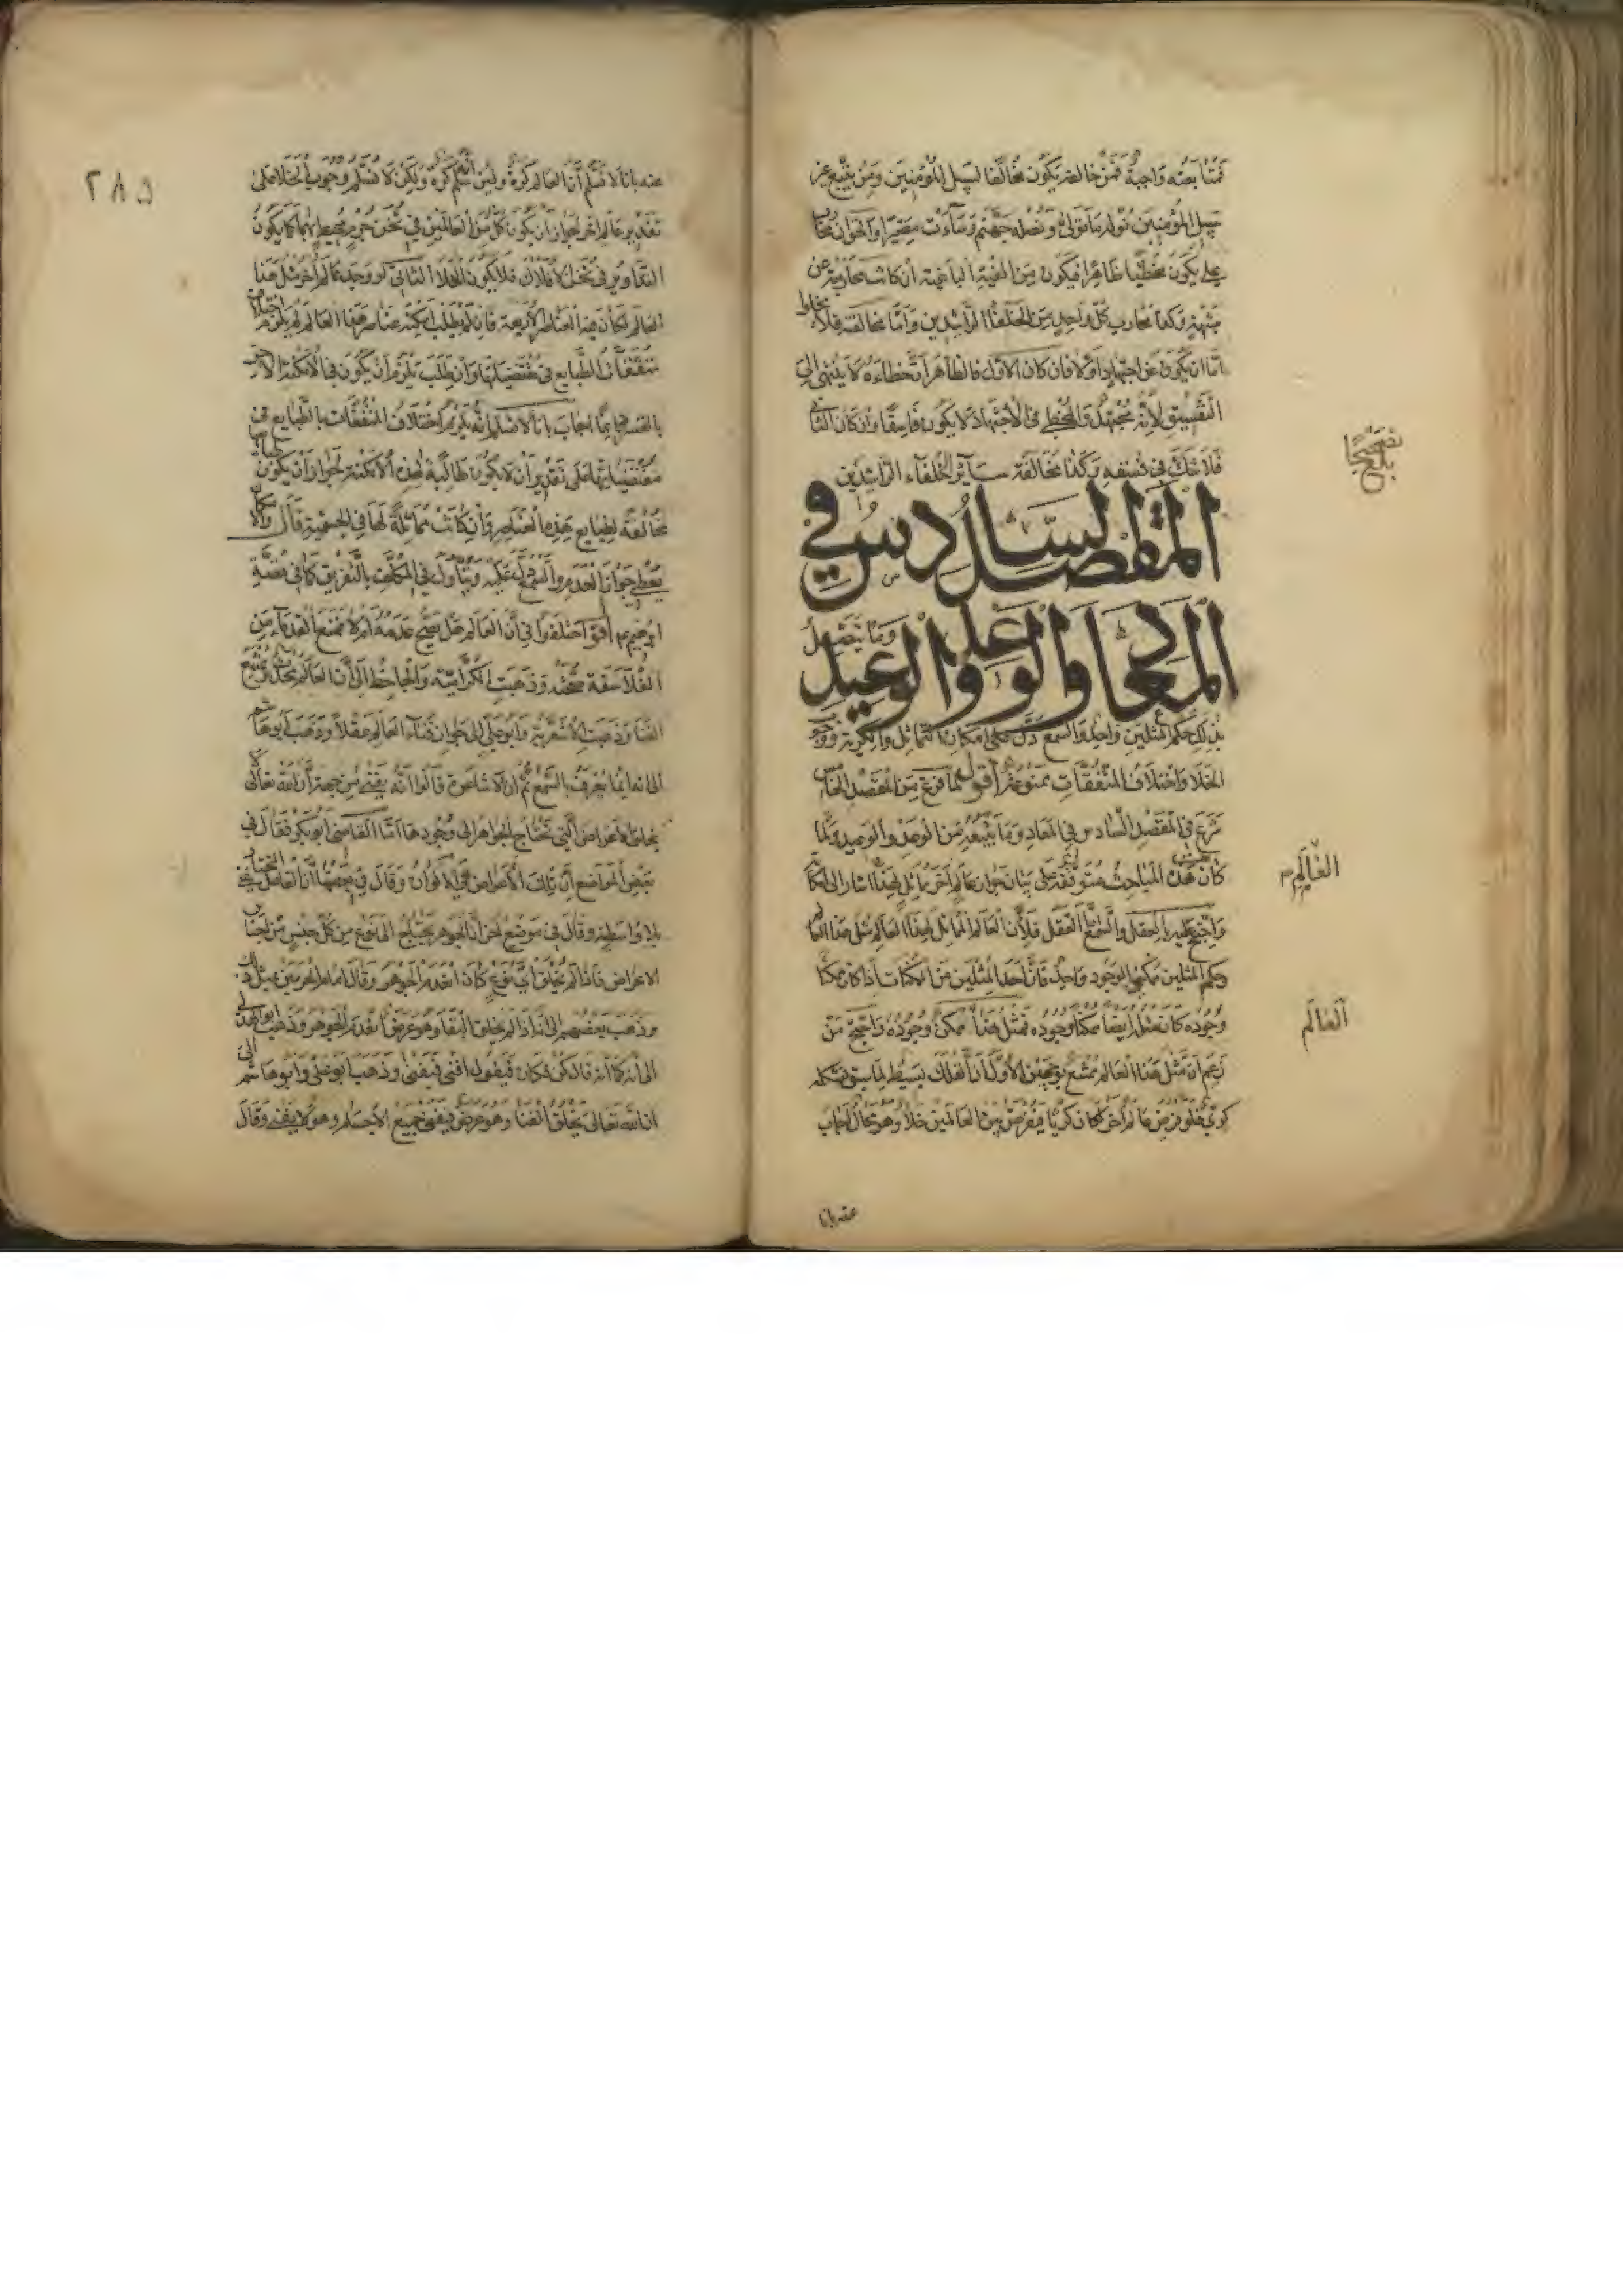 فمتابعته واجبة فمن خالفه يكون مخالفا لسبيل المؤمنين ومن يتبع غير
سبيل المؤمنين نوله ما تولى ونصله جهنم وساءت مصيرا والحق ان محارب
علي يكون مخطئا ظاهرا فيكون من الفئة الباغية ان كانت محاربته عن
شبهة وكذا محارب كل واحد من الخلفاء الراشدين واما مخالفه فلا يخلوا
اما ان يكون عن اجتهاد اولا فان كان الاول فالظاهر ان خطاءه لا ينتهي الى
التفسيق لانه مجتهد والمخطي في الاجتهاد لا يكون فاسقا وان كان الثاني
فلا شك في فسقه وكذا مخالفة سائر الخلفاء الراشدين
المقصد السادس في
المعاد والوعد والوعيد وما يتصل
بذلك حكم المثلين واحد والسمع دل على امكان التماثل والكرية ووجوب
الخلا واختلاف المتفقات ممنوعة اقول لما فرغ من المقصد الخامس
شرع في المقصد السادس في المعاد وما يتبعه من الوعد والوعيد ولما
كان هذه المباحث متوقفة على بيان جواز عالم اخر مماثل لهذا اشار الى امكانه
واحتج عليه بالعقل والسمع اما العقل فلان العالم المماثل لهذا العالم مثل هذا العالم
وحكم المثلين ممكني الوجود واحد فان احد المثلين من الممكنات اذا كان ممكنا
وجوده كان مثله ايضا ممكنا وجوده فمثل هذا ممكن وجوده واحتج من
زعم ان مثل هذا العالم ممتنع بوجهين الاول ان الفلك بسيط لما سبق فشكله
كري فلو فرض عالم اخر لكان كريا فيفرض بين العالمين خلا وهو محال اجاب
عنه بانا
تصحيحا
بلغ
العالم
العالم
٢٨٥
عنه بانا لا نسلم ان العالم كرة ولئن سلم انه كرة ولكن لا نسلم وجوب الخلا على
تقدير عالم اخر لجواز ان يكون كل من العالمين في ثخن جرم محيط بهما كما يكون
التداوير في ثخن الافلاك فلا يكون الخلا الثاني لو وجد عالم اخر مثل هذا
العالم لكان فيه العناصر الاربعة فان لم يطلب امكنة عناصر هذا العالم لزم اختلاف
متفقات الطبايع في مقتضياتها وان طلبت يلزم ان يكون في الامكنة الاخر
بالقسر دايما اجاب بانا لا نسلم انه يلزم اختلاف المتفقات بالطبايع في
مقتضياتها على تقدير ان لا يكون طالبة لهذه الامكنة لجواز ان يكون طبايعها
مخالفة لطبايع هذه العناصر وان كانت مماثلة لها في الجسمية قال والامكان
يعطي جواز العدم والسمع دل عليه ويتاول في المكلف بالتفريق كما في قصة
ابرهيم ع اقول اختلفوا في ان العالم هل يصح عدمه ام لا فمنع القدماء من
الفلاسفة صحته وذهبت الكرامية والجاحظ الى ان العالم محدث ممتنع
الفنا وذهبت الاشعرية وابو علي الى جواز فناء العالم عقلا وذهب ابو هاشم
الى انه انما يعرف بالسمع ثم ان الاشاعرة قالوا انه يفنى من جهة ان الله تعالى لا
يخلق الاعراض التي تحتاج الجواهر الى وجودها اما القاضي ابو بكر فقال في
بعض المواضع ان تلك الاعراض هي الاكوان وقال في بعضها ان الفاعل المختار يفنى
بلا واسطة وقال في موضع اخر ان الجوهر يحتاج الى نوع من كل جنس من اجناس
الاعراض فاذا لم يخلق اي نوع كان انعدم الجوهر وقال امام الحرمين بمثل ذلك
وذهب بعضهم الى انه اذا لم يخلق البقا وهو عرض انعدم الجوهر وذهب ابو الهذيل
الى انه كما انه قال كن فكان فيقول افنى فيفنى وذهب ابو علي وابو هاشم الى
ان الله تعالى يخلق الفنا وهو عرض فيفنى جميع الاجسام وهو لا يبقى وقال